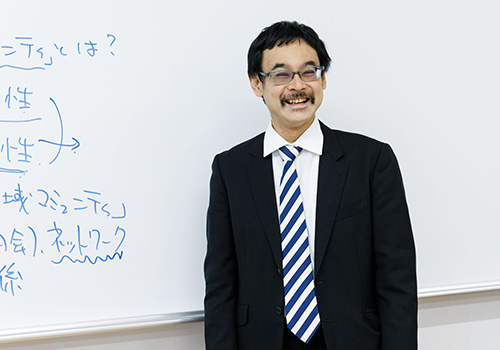 ニティ」とは?
性
性
域コミュニティ」
会)、ネットワーク
係